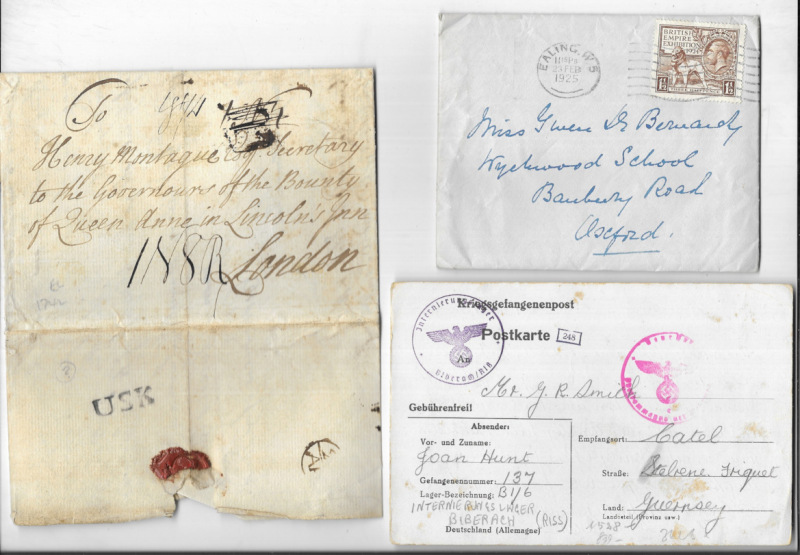 To
Henry Montague Esq. Secretary
to the Governours of the Bounty
of Queen Anne in Lincoln's Inn
London
USK
EALING. W5
FEB
1925
BRITISH
EMPIRE
EXHIBITION
1925
1½ 1½
Miss Gwen De Bernardy
Wychwood School
Banbury Road
Oxford.
Kriegsgefangenenpost
Postkarte 248
An
Internierungslager
Biberach/Riß
Mr. G. R. Smith
Gebührenfrei!
Absender:
Vor- und Zuname:
Joan Hunt
Gefangenennummer: 137
Lager-Bezeichnung: B1/6
INTERNIERUNGSLAGER
BIBERACH (RISS)
Deutschland (Allemagne)
Empfangsort: Catel
Straße:
Land: Guernsey
Landesteil (Provinz usw.)